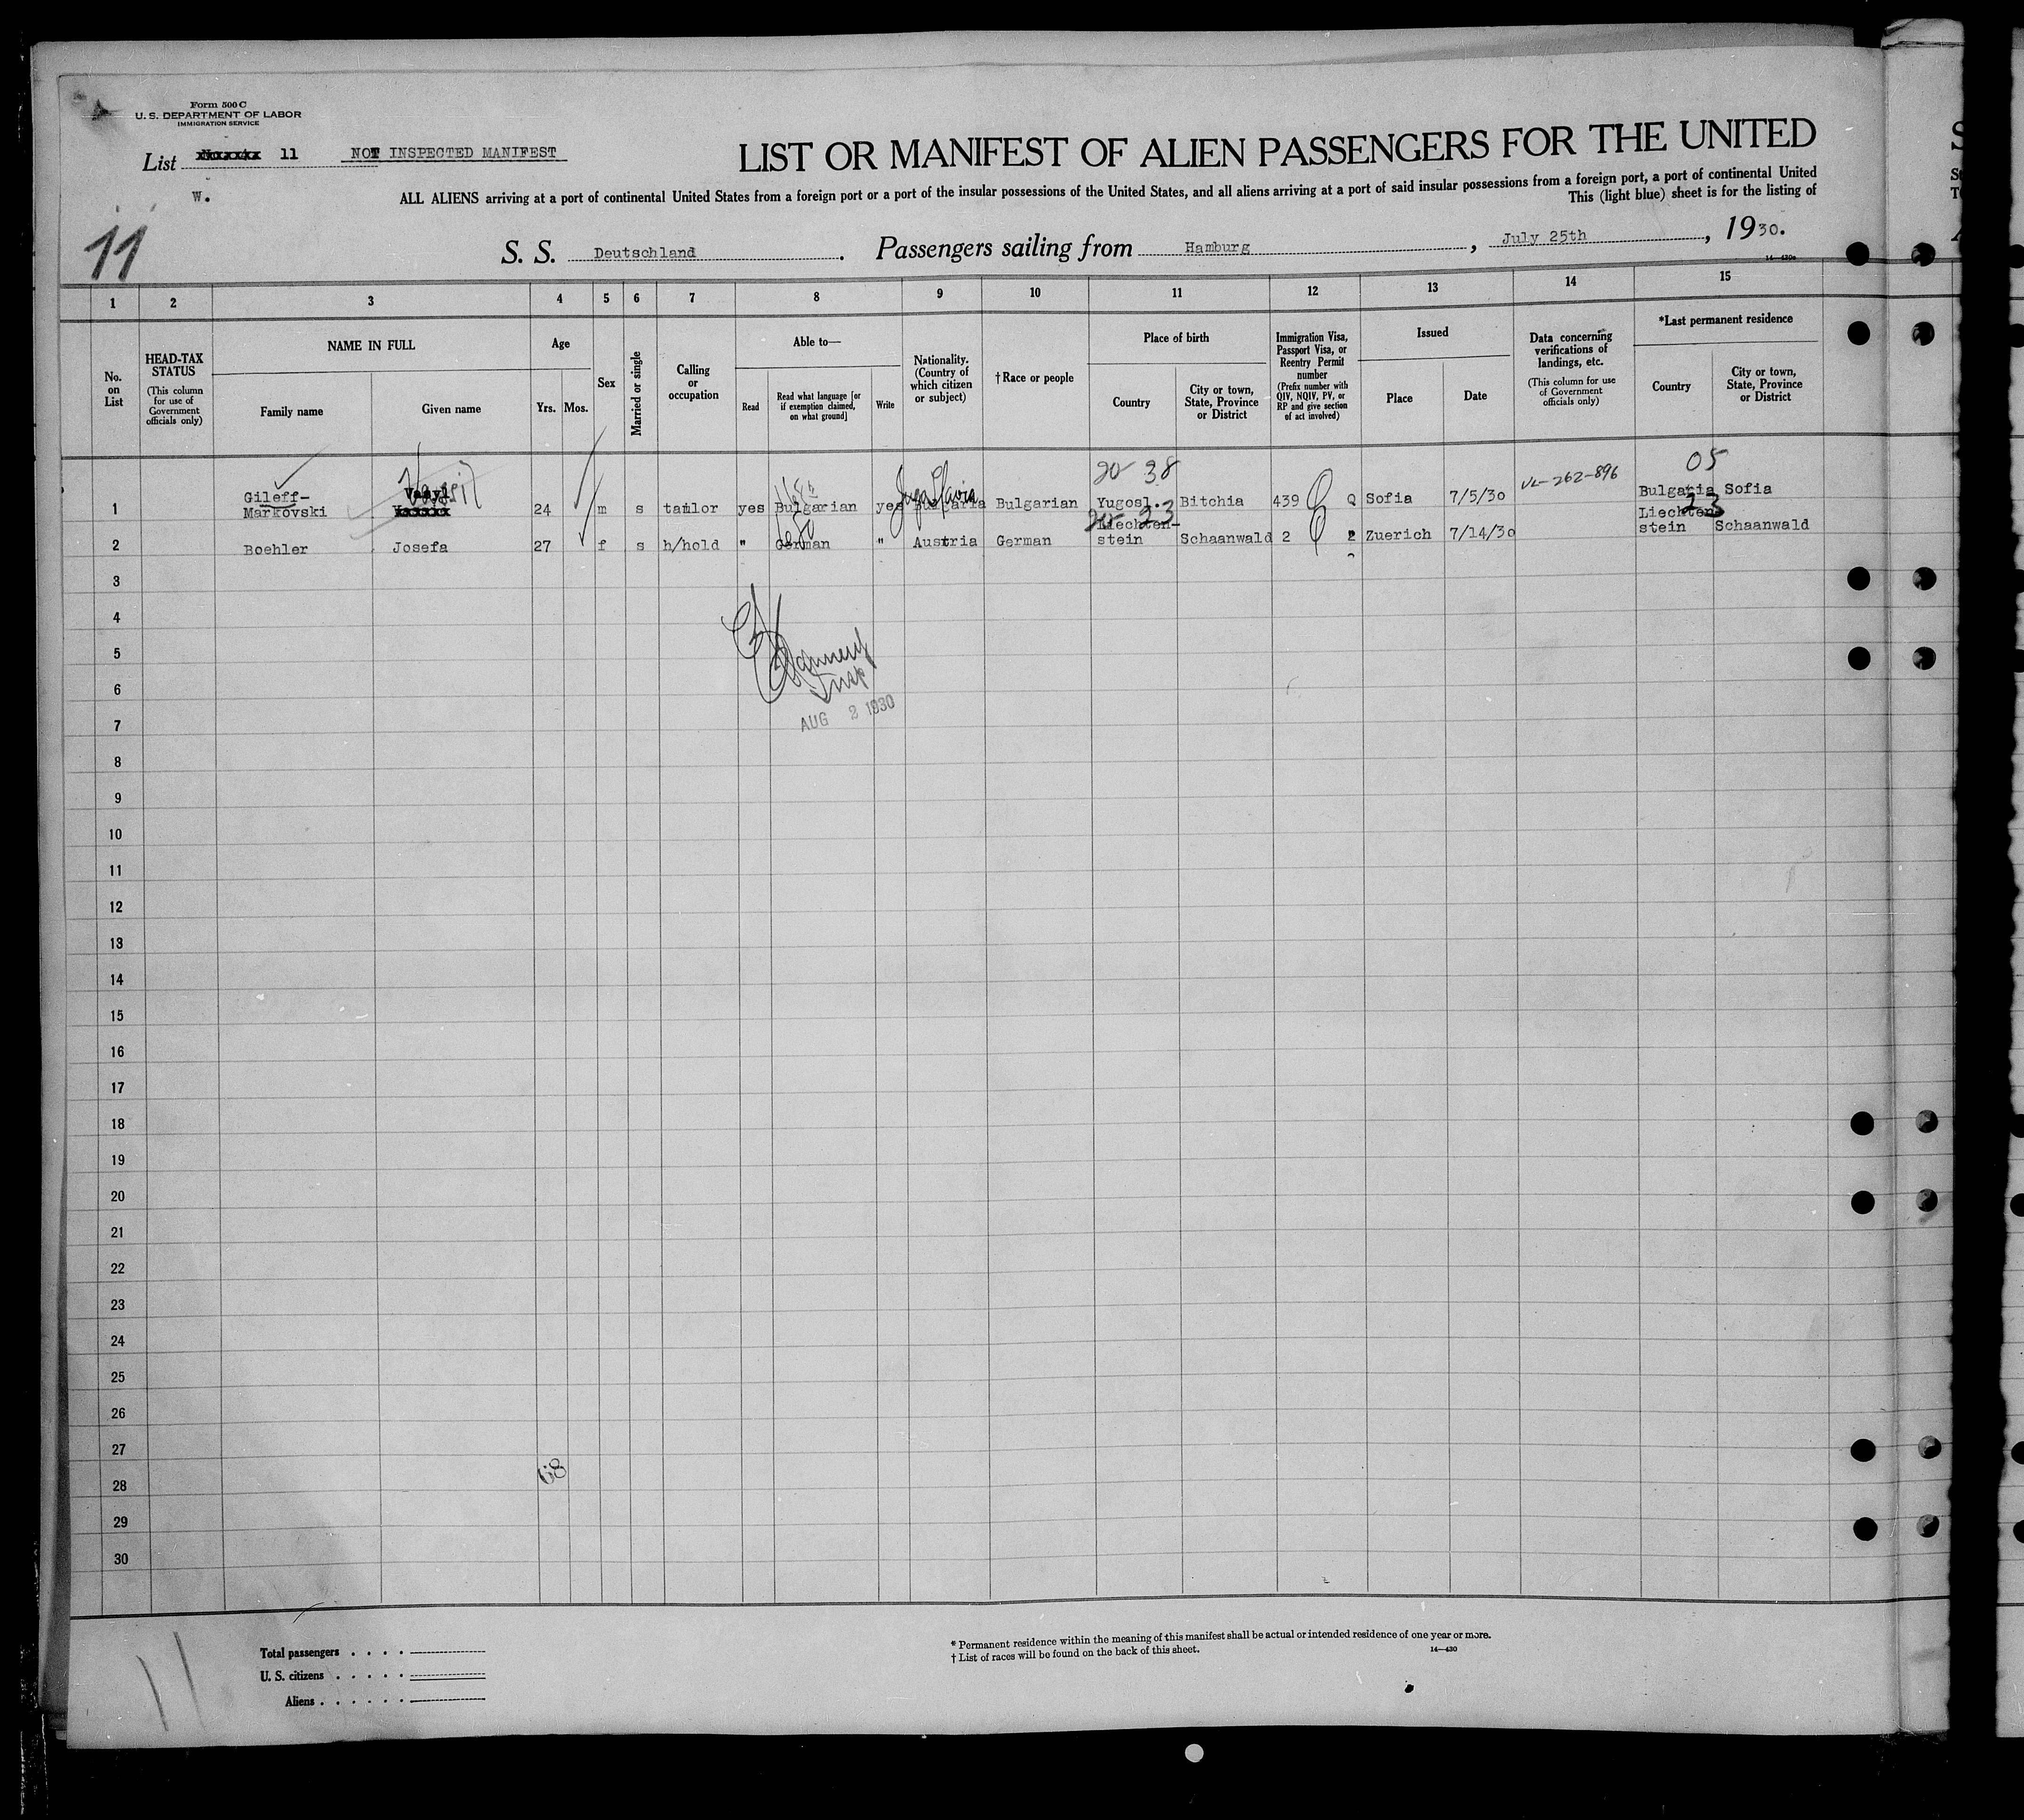 Form 500 C
U. S. DEPARTMENT OF LABOR
IMMIGRATION SERVICE
List 11 NOT INSPECTED MANIFEST
W.
11
LIST OR MANIFEST OF ALIEN PASSENGERS FOR THE UNITED
ALL ALIENS arriving at a port of continental United States from a foreign port or a port of the insular possessions of the United States, and all aliens arriving at a port of said insular possessions from a foreign port, a port of continental United
This (light blue) sheet is for the listing of
S. S. Deutschland. Passengers sailing from Hamburg, July 25th, 1930.
14—430a
1 2 3 4 5 6 7 8 9 10 11 12 13 14 15
No. on List
HEAD-TAX STATUS
(This column for use of Government officials only)
NAME IN FULL
Family name
Given name
Age
Yrs.
Mos.
Sex
Married or single
Calling or occupation
Able to—
Read
Read what language [or if exemption claimed, on what ground]
Write
Nationality. (Country of which citizen or subject)
†Race or people
Place of birth
Country
City or town, State, Province or District
Immigration Visa, Passport Visa, or Reentry Permit number
(Prefix number with QIV, NQIV, PV, or RP and give section of act involved)
Issued
Place
Date
Data concerning verifications of landings, etc.
(This column for use of Government officials only)
*Last permanent residence
Country
City or town, State, Province or District
20 38
VL-262-896
05
1 Gileff-Markovski Vasyl Vassil 24 m s tailor yes Bulgarian yes Bulgaria JugoSlavia Bulgarian Yugosl. Bitchia 439 Q Sofia 7/5/30 Bulgaria Sofia
23
23
2 Boehler Josefa 27 f s h/hold " German " Austria German Liechten-stein Schaanwald 2 Zuerich 7/14/30 Liechten-stein Schaanwald
3
4
5
6
Insp
AUG 2 1930
7
8
9
10
11
12
13
14
15
16
17
18
19
20
21
22
23
24
25
26
27
68
28
29
30
11
Total passengers
U. S. citizens
Aliens
* Permanent residence within the meaning of this manifest shall be actual or intended residence of one year or more.
† List of races will be found on the back of this sheet.
14—430